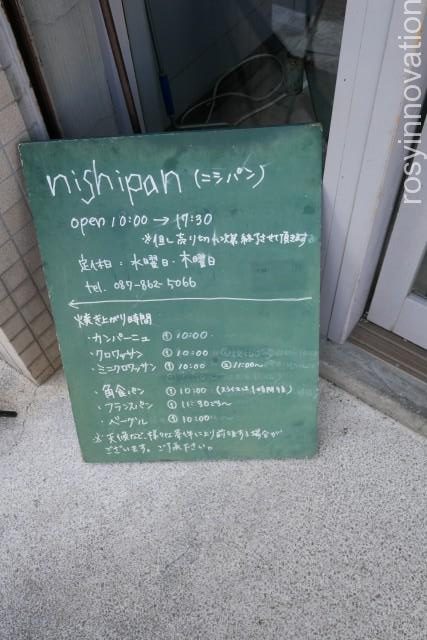 nishipan (ニシパン)
open 10:00 → 17:30
※但し売り切れ次第終了させて頂きます
定休日：水曜日・木曜日
tel. 087-862-5066
焼き上がり時間
・カンパーニュ ① 10:00
・クロワッサン ① 10:00
・ミニクロワッサン ① 10:00 ② 11:00~
・角食パン ① 10:00 (スライスは1時間後)
・フランスパン ① 11:30ごろ~
・ベーグル ① 10:00~
※天候など、様々な条件により前後する場合が
ございます。ご了承下さい。
rosyinnovation